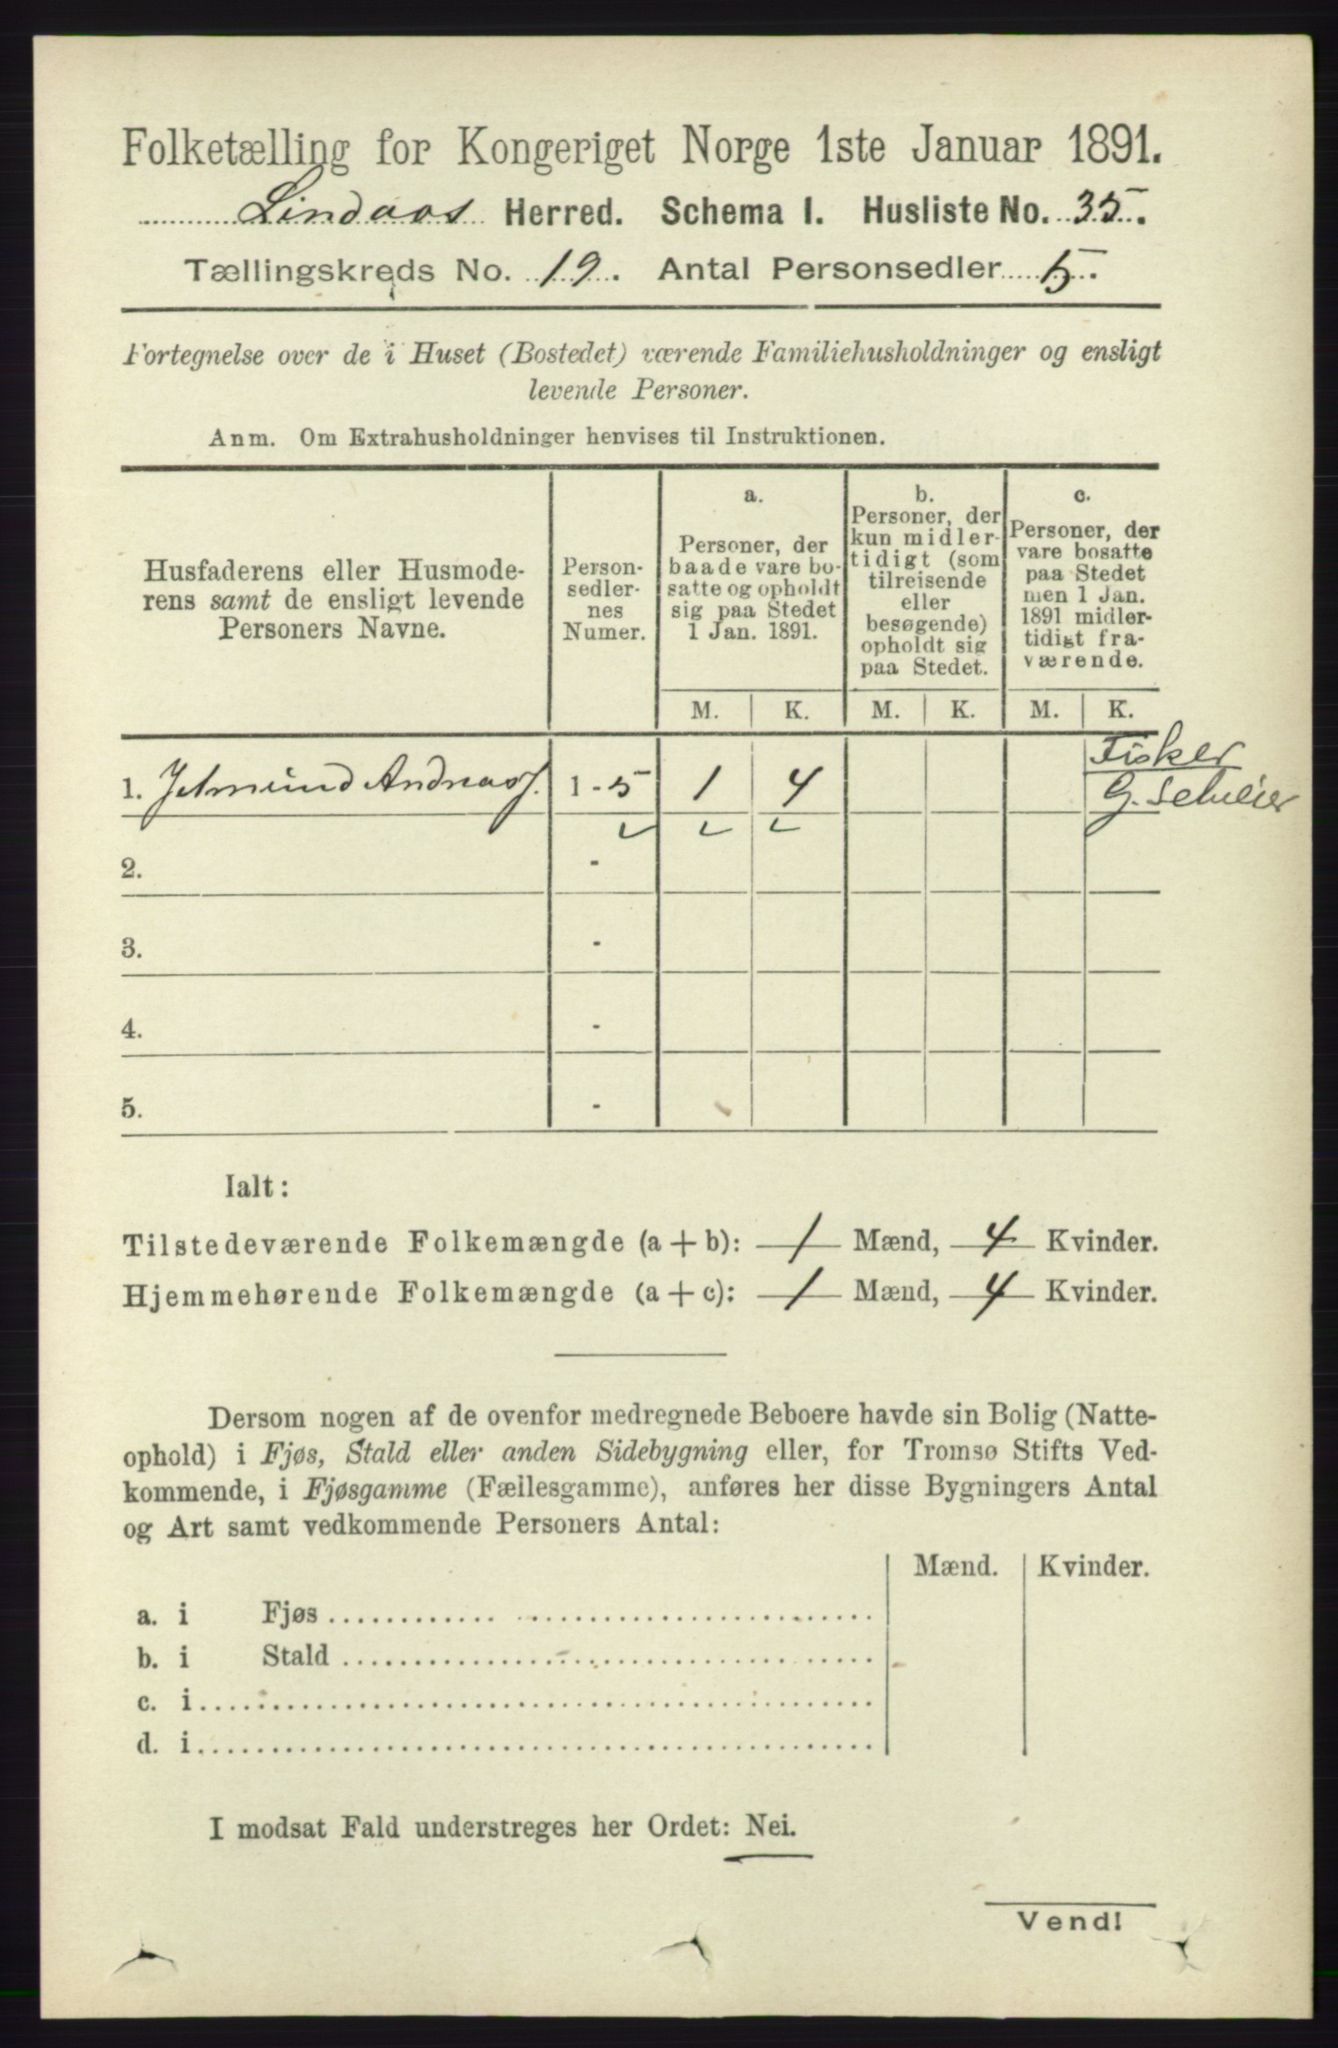 Folketælling for Kongeriget Norge 1ste Januar 1891.
Lindaas Herred. Schema I. Husliste No. 35.
Tællingskreds No. 19. Antal Personsedler 5.
Fortegnelse over de i Huset (Bostedet) værende Familiehusholdninger og ensligt
levende Personer.
Anm. Om Extrahusholdninger henvises til Instruktionen.
Husfaderens eller Husmode-
rens samt de ensligt levende
Personers Navne.
Person-
sedler-
nes
Numer.
a.
Personer, der
baade vare bo-
satte og opholdt
sig paa Stedet
1 Jan. 1891.
b.
Personer, der
kun midler-
tidigt (som
tilreisende
eller
besøgende)
opholdt sig
paa Stedet.
c.
Personer, der
vare bosatte
paa Stedet
men 1 Jan.
1891 midler-
tidigt fra-
værende.
M. K. M. K. M. K.
Fisker
1. Andreas 1 - 5 1 4 G.
2. -
3. -
4. -
5. -
Ialt:
Tilstedeværende Folkemængde (a + b): 1 Mænd, 4 Kvinder.
Hjemmehørende Folkemængde (a + c): 1 Mænd, 4 Kvinder.
Dersom nogen af de ovenfor medregnede Beboere havde sin Bolig (Natte-
ophold) i Fjøs, Stald eller anden Sidebygning eller, for Tromsø Stifts Ved-
kommende, i Fjøsgamme (Fællesgamme), anføres her disse Bygningers Antal
og Art samt vedkommende Personers Antal:
Mænd. Kvinder.
a. i Fjøs
b. i Stald
c. i
d. i
I modsat Fald understreges her Ordet: Nei.
Vend!